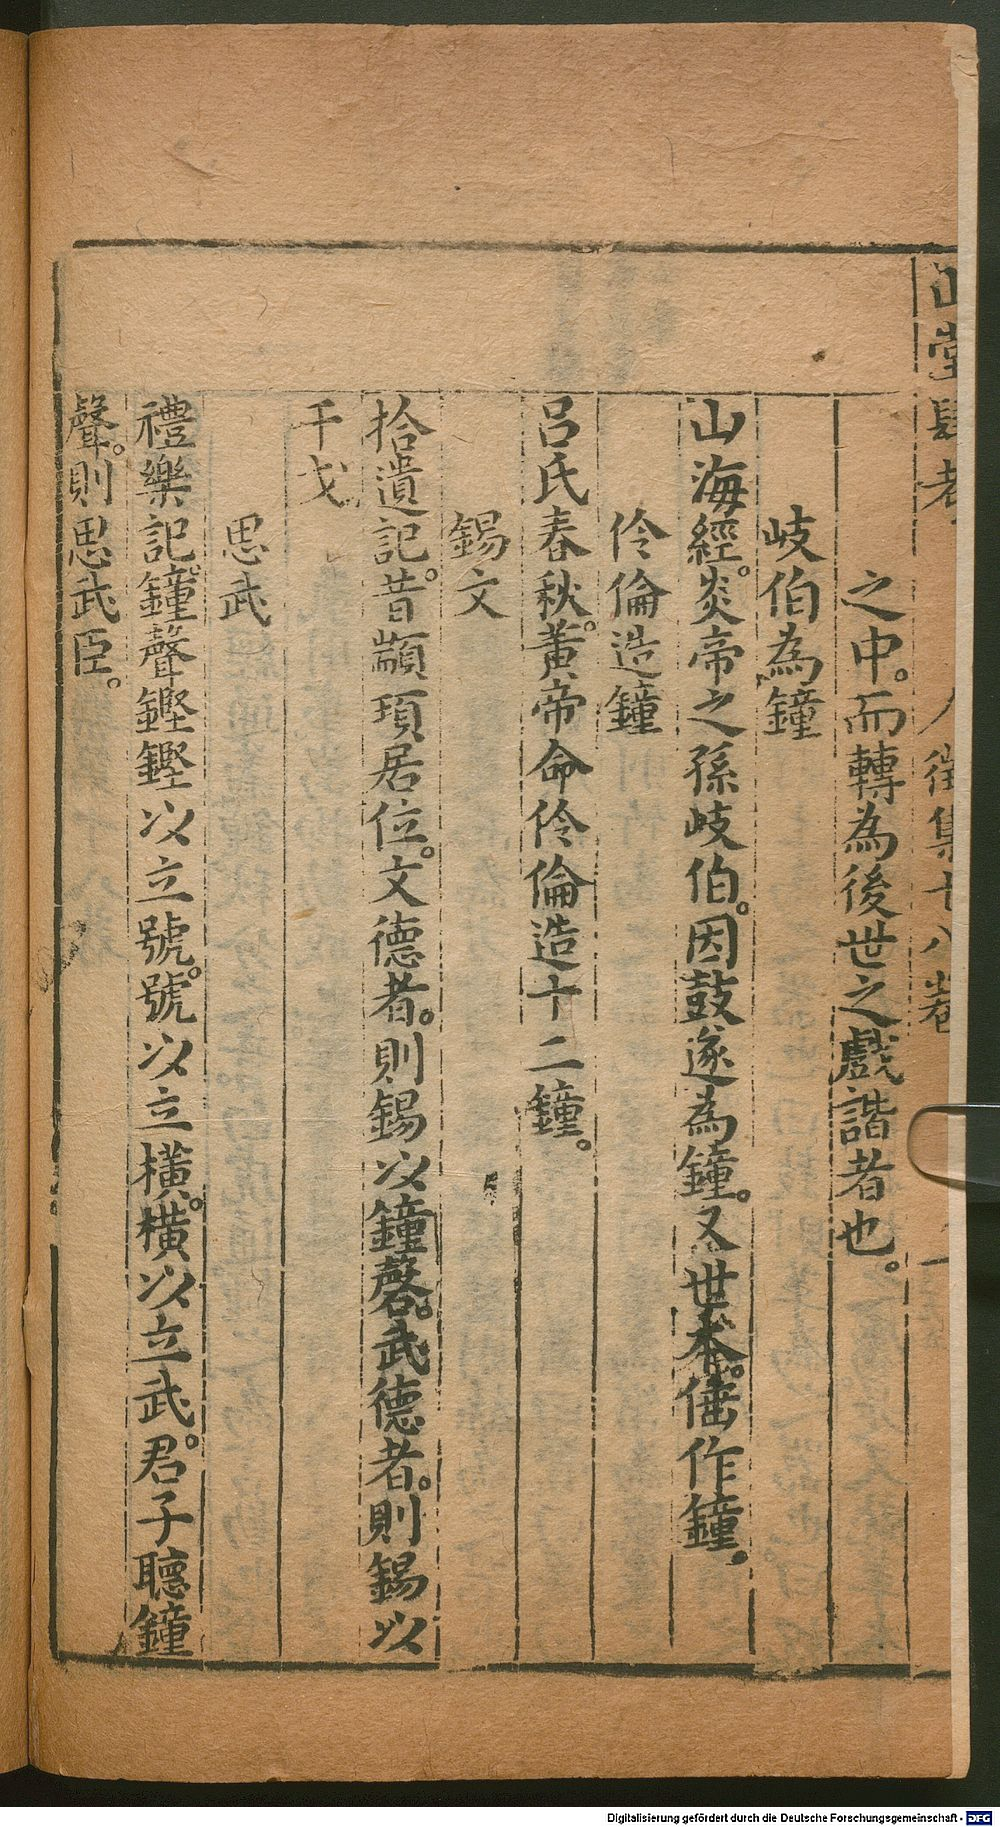 山堂肆考 徵集十八卷
之中。而轉為後世之戲諧者也。
岐伯為鐘
山海經。炎帝之孫岐伯。因鼓遂為鐘。又世本。倕作鐘。
伶倫造鐘
呂氏春秋。黃帝命伶倫造十二鐘。
錫文
拾遺記。昔顓頊居位。文德者。則錫以鐘磬。武德者。則錫以
干戈
思武
禮樂記。鐘聲鏗鏗以立號。號以立橫。橫以立武。君子聽鐘
聲。則思武臣。
Digitalisierung gefördert durch die Deutsche Forschungsgemeinschaft - DFG